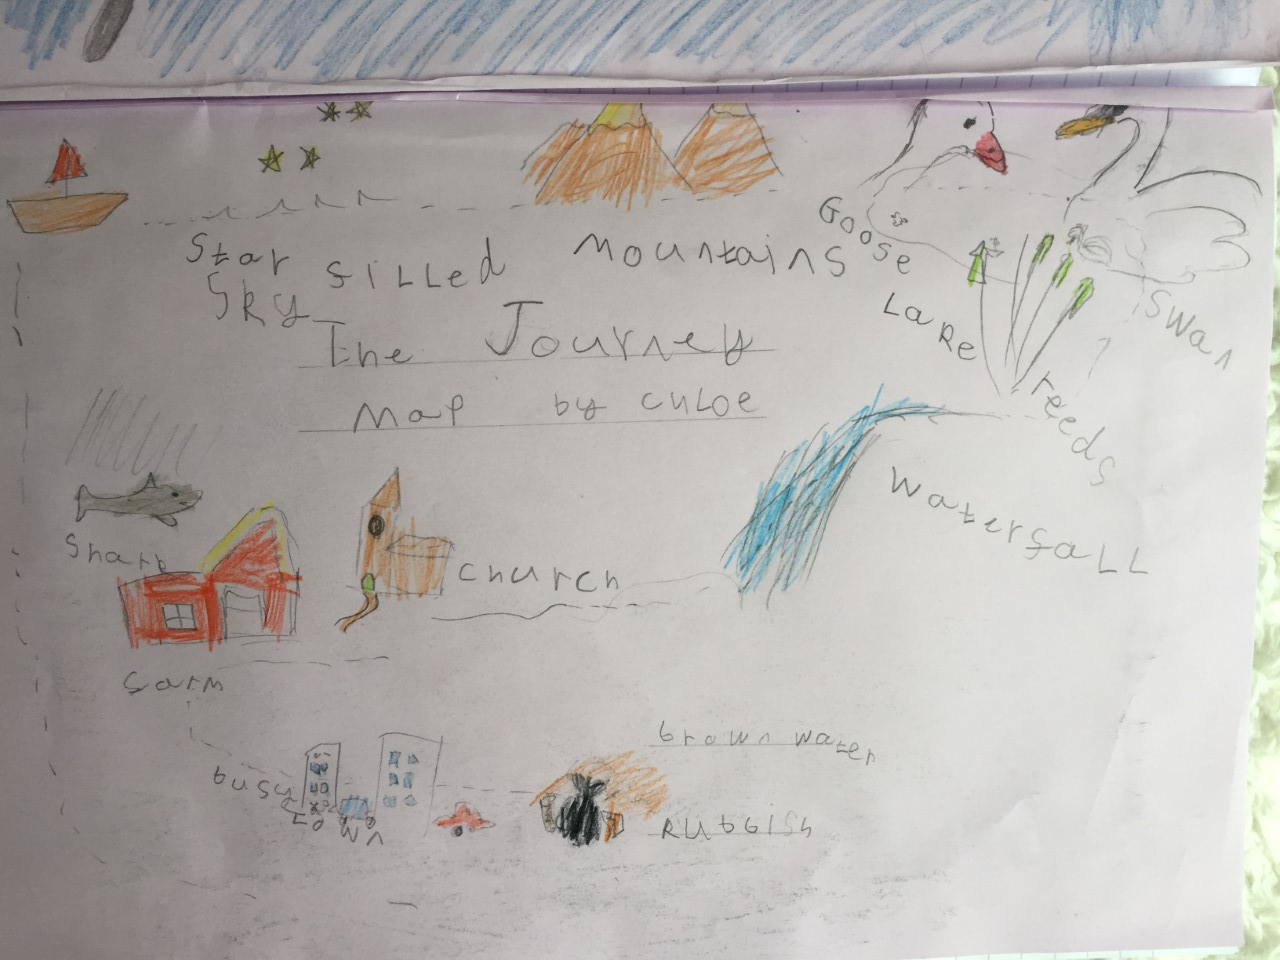 Star filled
Sky
Mountains
Goose
Lake
Swan
reeds
The Journey
Map by Chloe
Waterfall
Shark
church
farm
busy
town
brown water
Rubbish